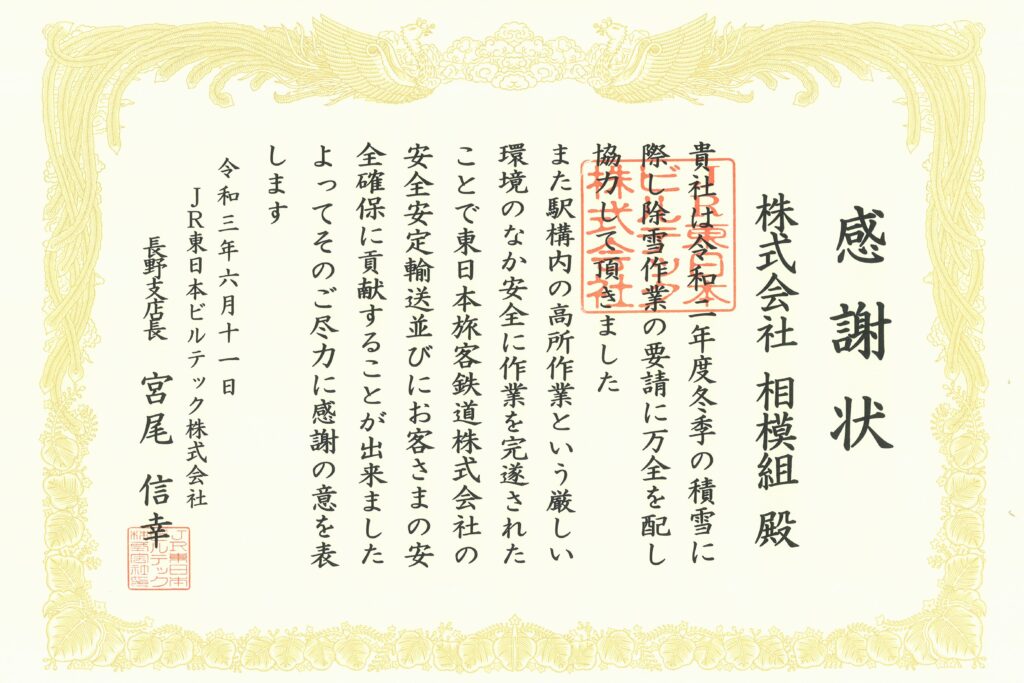 感謝状
株式会社 相模組 殿
貴社は令和二年度冬季の積雪に
際し除雪作業の要請に万全を配し
協力して頂きました
また駅構内の高所作業という厳しい
環境のなか安全に作業を完遂された
ことで東日本旅客鉄道株式会社の
安全安定輸送並びにお客さまの安
全確保に貢献することが出来ました
よってそのご尽力に感謝の意を表
します
令和三年六月十一日
JR東日本ビルテック株式会社
長野支店長 宮尾 信幸
JR東日本
ビルテック
株式会社
JR東日本
ビルテック